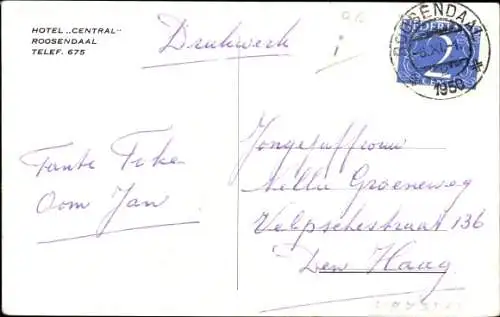 HOTEL „CENTRAL"
ROOSENDAAL
TELEF. 675
Drukwerk
ROOSENDAAL
1950
NEDERLAND
2
CENT
Tante Fike
Oom Jan
Jongejuffrouw
Nellie Groeneweg
Velpschestraat 136
Den Haag